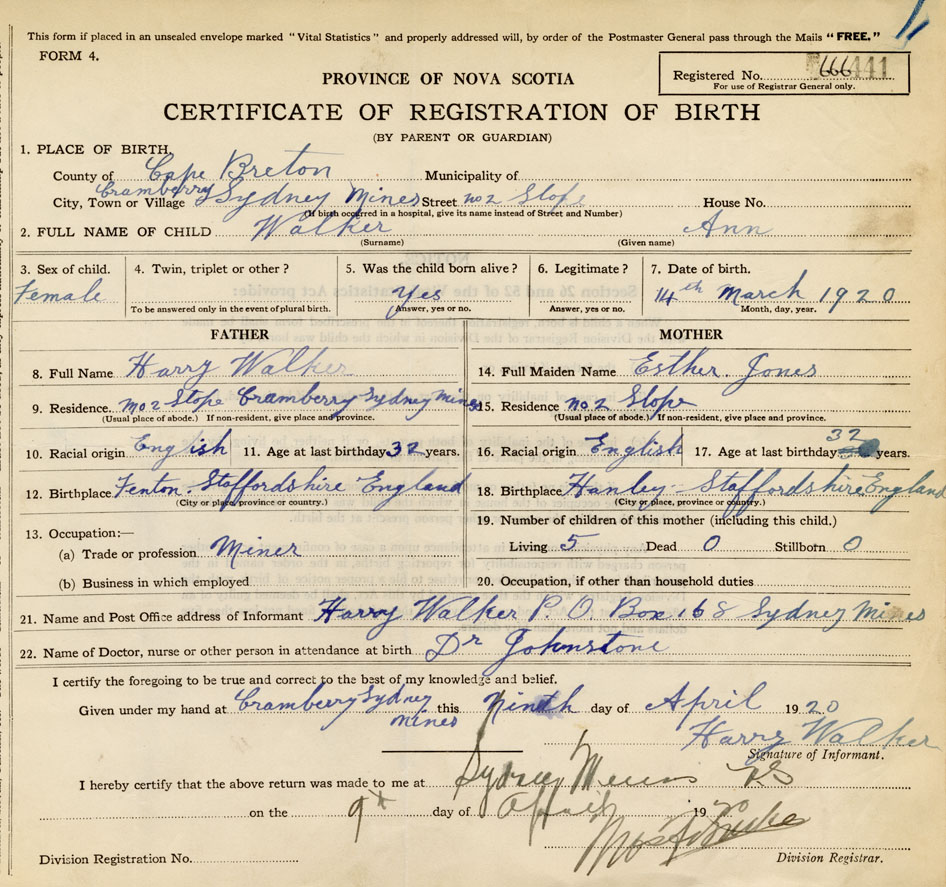 This form if placed in an unsealed envelope marked "Vital Statistics" and properly addressed will, by order of the Postmaster General pass through the Mails "FREE."
FORM 4.
PROVINCE OF NOVA SCOTIA
Registered No. 666441
For use of Registrar General only.
CERTIFICATE OF REGISTRATION OF BIRTH
(BY PARENT OR GUARDIAN)
1. PLACE OF BIRTH,
County of Cape Breton Municipality of
Cramberry
City, Town or Village Sydney Mines Street no 2 Slope House No.
(If birth occurred in a hospital, give its name instead of Street and Number)
2. FULL NAME OF CHILD Walker Ann
(Surname) (Given name)
3. Sex of child. 4. Twin, triplet or other? 5. Was the child born alive? 6. Legitimate? 7. Date of birth.
Female Yes 14th March 1920
To be answered only in the event of plural birth. Answer, yes or no. Answer, yes or no. Month, day, year.
FATHER MOTHER
8. Full Name Harry Walker 14. Full Maiden Name Esther Jones
9. Residence. No 2 Slope Cramberry Sydney Mines 15. Residence no 2 Slope
(Usual place of abode.) If non-resident, give place and province. (Usual place of abode.) If non-resident, give place and province.
10. Racial origin English 11. Age at last birthday 32 years. 16. Racial origin English 17. Age at last birthday 32 years.
12. Birthplace Fenton. Staffordshire England 18. Birthplace Hanley - Staffordshire England
(City or place, province or country.) (City or place, province or country.)
13. Occupation:— 19. Number of children of this mother (including this child.)
(a) Trade or profession Miner Living 5 Dead 0 Stillborn 0
(b) Business in which employed 20. Occupation, if other than household duties
21. Name and Post Office address of Informant Harry Walker P.O. Box 168 Sydney Mines
22. Name of Doctor, nurse or other person in attendance at birth Dr Johnstone
I certify the foregoing to be true and correct to the best of my knowledge and belief.
Given under my hand at Cramberry Sydney Mines this Ninth day of April 1920
Harry Walker
Signature of Informant.
I hereby certify that the above return was made to me at Sydney Mines
on the 9th day of April 1920
Division Registration No. Division Registrar.